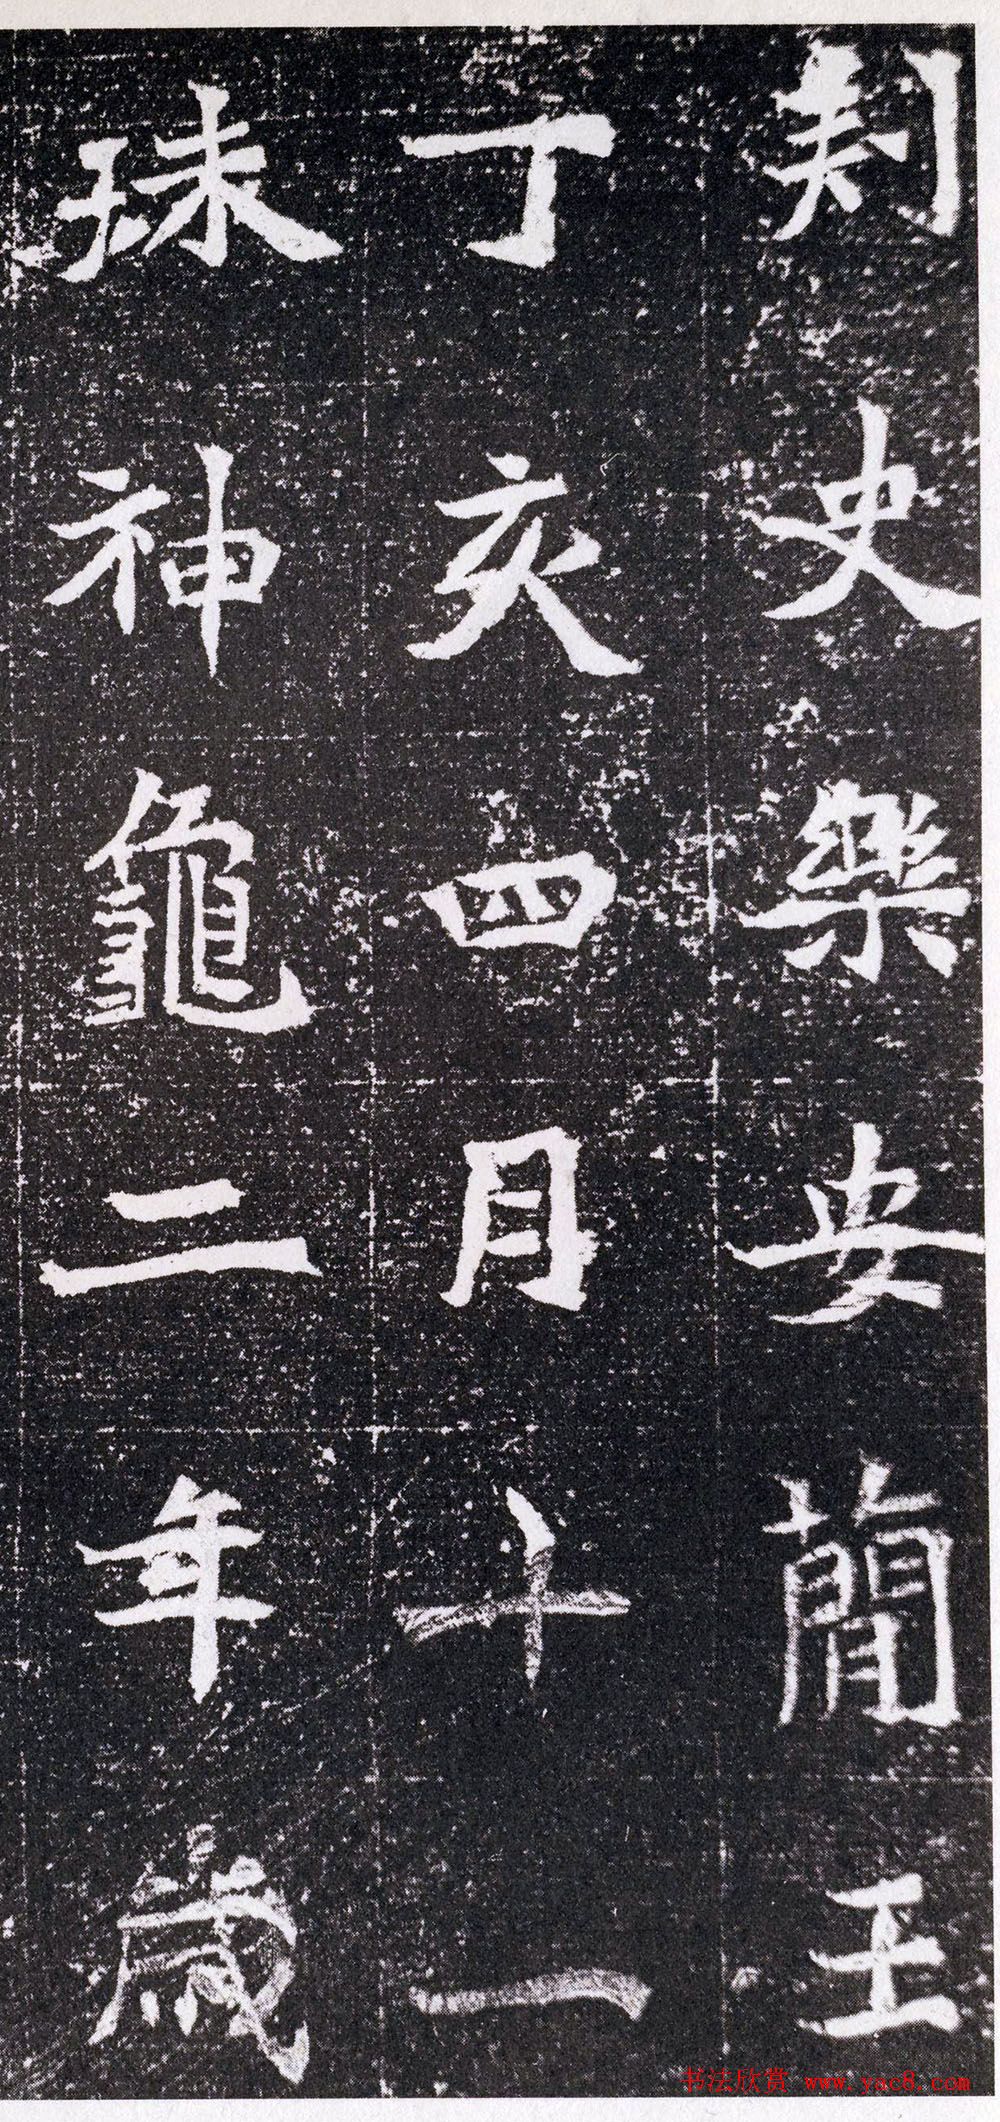 刾史樂安簡王
丁亥四月十一
珠神龜二年歲
书法欣赏 www.yac8.com